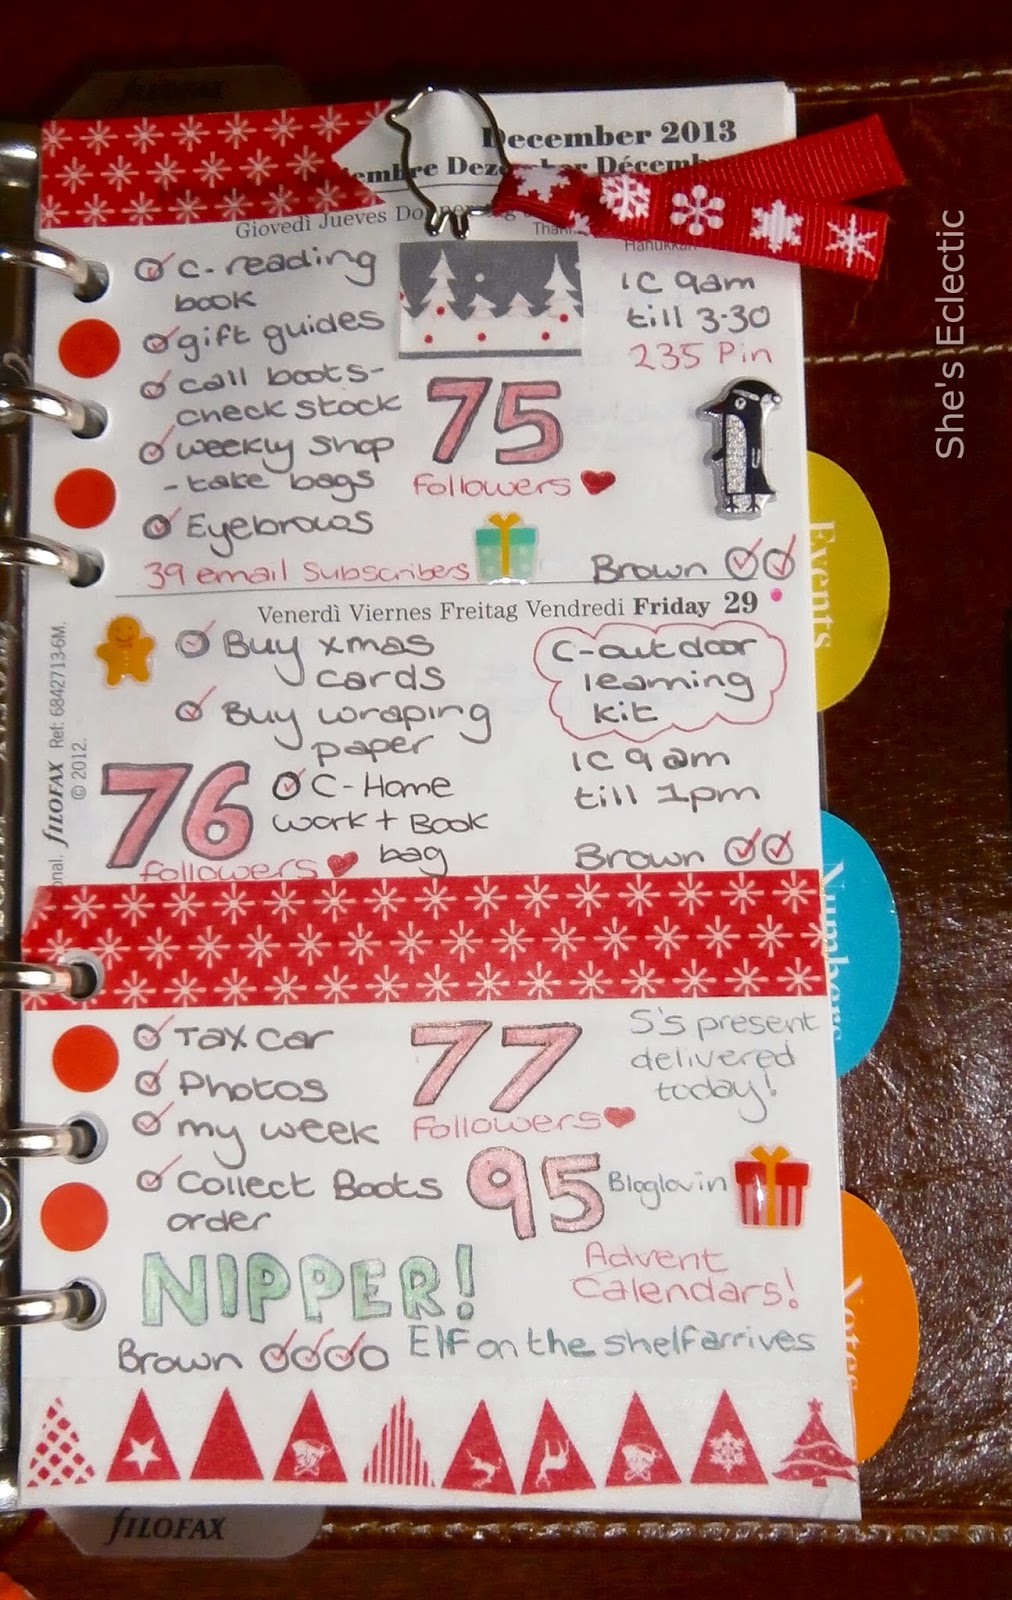 December 2013
embre Dez Décemb
Giovedì Jueves
Hanukkah
c-reading
book
gift guides
call boots-
check stock
weekly shop
- take bags
Eyebrows
39 email Subscribers
75
followers
1C 9am
till 3-30
235 Pin
Brown
Venerdì Viernes Freitag Vendredi Friday 29
Buy xmas
cards
Buy wraping
paper
C-Home
work + Book
bag
76
followers
C-outdoor
learning
kit
1C 9am
till 1pm
Brown
Tax car
Photos
my week
Collect Boots
order
77
followers
95 Bloglovin
S's present
delivered
today!
Advent
Calendars!
NIPPER!
Brown
Elf on the shelf arrives
fILOFAX
onal. fILOFAX Ref: 6842713-6M.
© 2012.
Events
Numbers
Notes
She's Eclectic